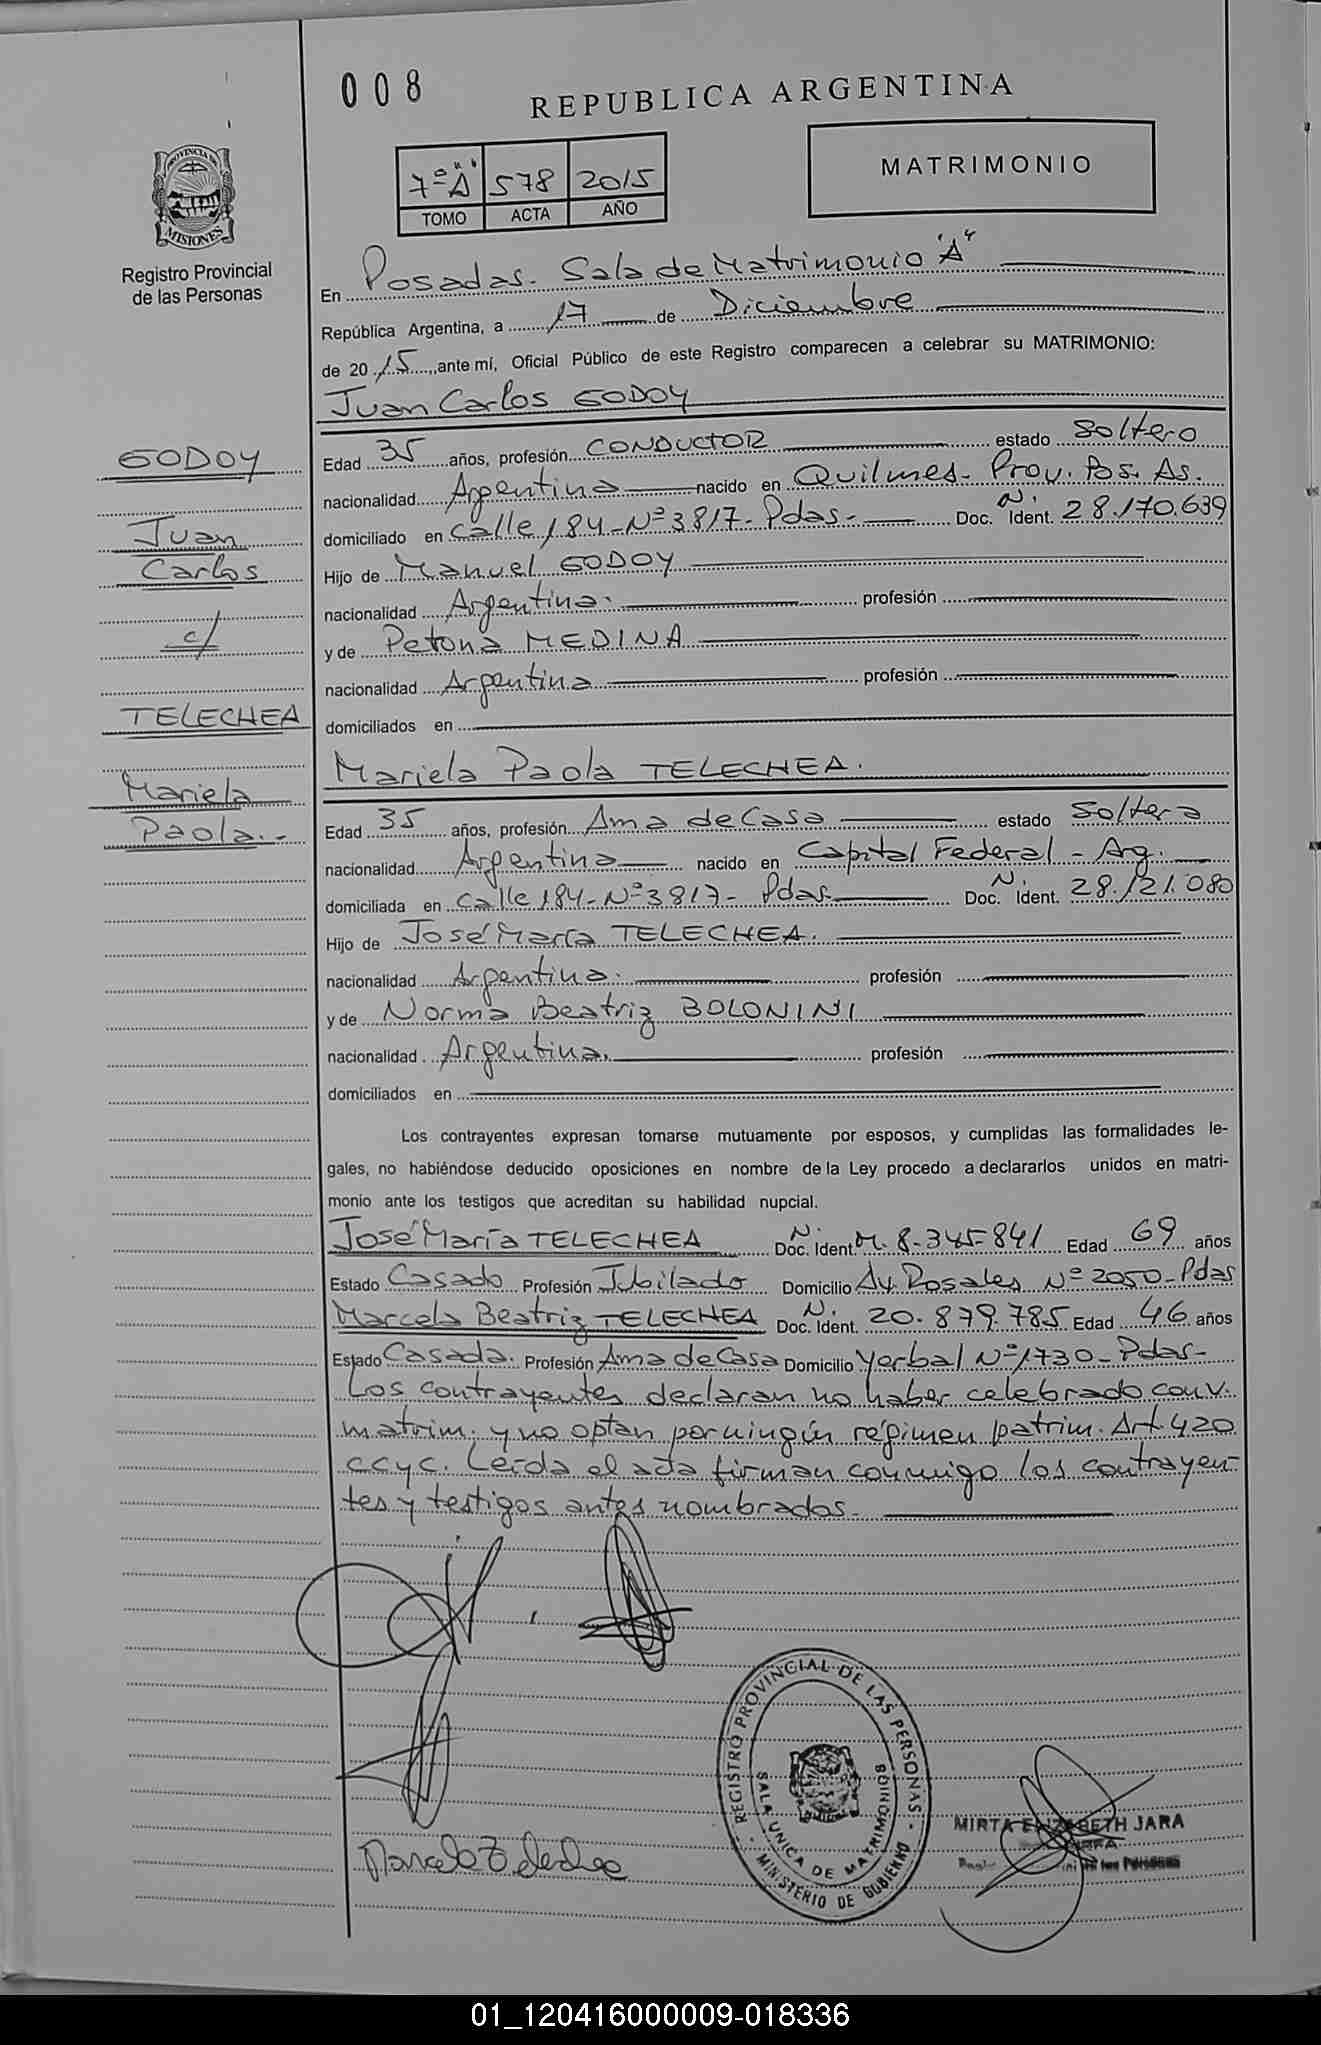 008
REPUBLICA ARGENTINA
PROVINCIA DE
MISIONES
Registro Provincial
de las Personas
7º "A" 578 2015
TOMO ACTA AÑO
MATRIMONIO
En Posadas. Sala de Matrimonio "A"
República Argentina, a 17 de Diciembre
de 2015, ante mí, Oficial Público de este Registro comparecen a celebrar su MATRIMONIO:
Juan Carlos GODOY
GODOY
Juan
Carlos
c/
TELECHEA
Mariela
Paola.-
Edad 35 años, profesión CONDUCTOR estado Soltero
nacionalidad Argentina nacido en Quilmes. Prov. Bs. As.
domiciliado en Calle 184-Nº3817-Pdas- Doc. N. Ident. 28.170.639
Hijo de Manuel GODOY
nacionalidad Argentina. profesión
y de Petona MEDINA
nacionalidad Argentina profesión
domiciliados en
Mariela Paola TELECHEA.
Edad 35 años, profesión Ama de Casa estado Soltera
nacionalidad Argentina nacido en Capital Federal - Arg.
domiciliada en Calle 184-Nº3817- Pdas- Doc. N. Ident. 28.121.080
Hijo de José María TELECHEA.
nacionalidad Argentina. profesión
y de Norma Beatriz BOLONINI
nacionalidad Argentina. profesión
domiciliados en
Los contrayentes expresan tomarse mutuamente por esposos, y cumplidas las formalidades le-
gales, no habiéndose deducido oposiciones en nombre de la Ley procedo a declararlos unidos en matri-
monio ante los testigos que acreditan su habilidad nupcial.
José María TELECHEA Doc. N. Ident M. 8.345.841 Edad 69 años
Estado Casado Profesión Jubilado Domicilio Av. Rosales Nº 2050-Pdas
Marcela Beatriz TELECHEA Doc. N. Ident. 20.879.785 Edad 46 años
Estado Casada. Profesión Ama de Casa Domicilio Yerbal Nº1730-Pdas-
Los contrayentes declaran no haber celebrado conv.
matrim. y no optan por ningún régimen patrim. Art 420
CCyC. Leída el acta firman conmigo los contrayen-
tes y testigos antes nombrados.
Marcela Telechea
REGISTRO PROVINCIAL DE LAS PERSONAS
SALA UNICA DE MATRIMONIOS
MINISTERIO DE GOBIERNO
MIRTA ELIZABETH JARA
01_120416000009-018336